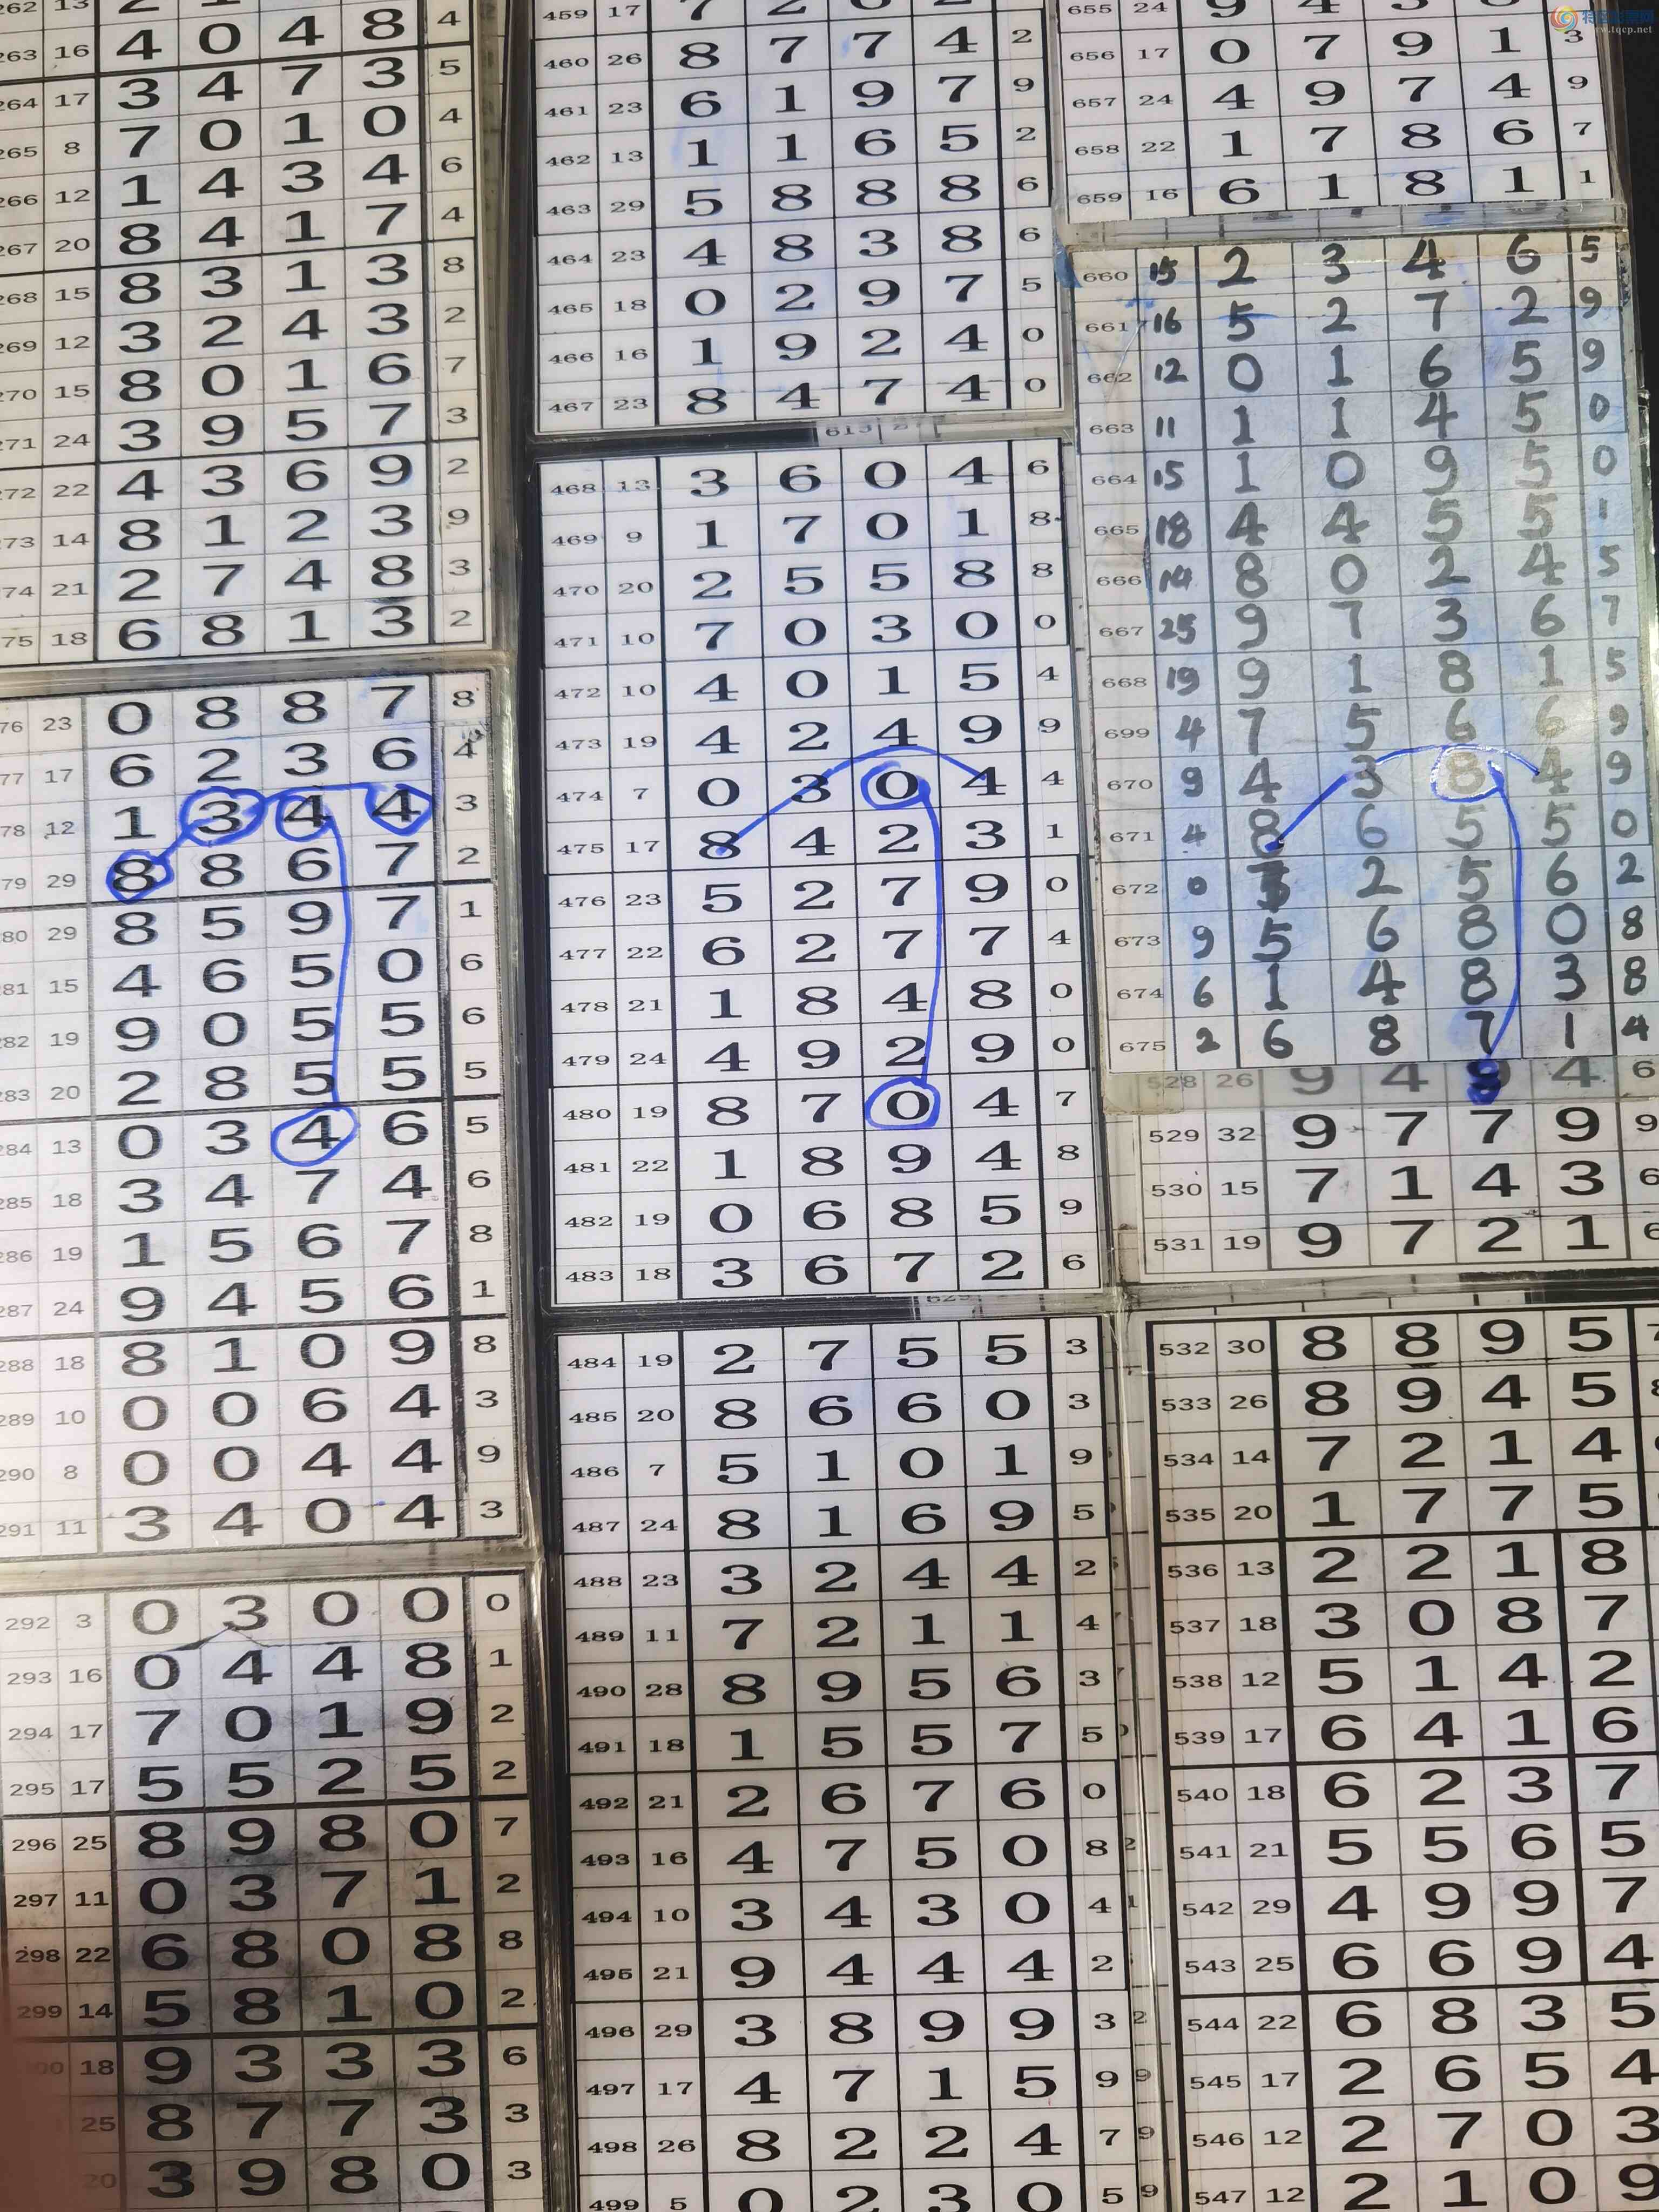 263 16 4 0 4 8 4
264 17 3 4 7 3 5
265 8 7 0 1 0 4
266 12 1 4 3 4 6
267 20 8 4 1 7 4
268 15 8 3 1 3 8
269 12 3 2 4 3 2
270 15 8 0 1 6 7
271 24 3 9 5 7 3
272 22 4 3 6 9 2
73 14 8 1 2 3 9
74 21 2 7 4 8 3
75 18 6 8 1 3 2
76 23 0 8 8 7 8
77 17 6 2 3 6 4
78 12 1 3 4 4 3
79 29 8 8 6 7 2
80 29 8 5 9 7 1
281 15 4 6 5 0 6
282 19 9 0 5 5 6
283 20 2 8 5 5 5
284 13 0 3 4 6 5
285 18 3 4 7 4 6
286 19 1 5 6 7 8
287 24 9 4 5 6 1
288 18 8 1 0 9 8
289 10 0 0 6 4 3
290 8 0 0 4 4 9
291 11 3 4 0 4 3
292 3 0 3 0 0 0
293 16 0 4 4 8 1
294 17 7 0 1 9 2
295 17 5 5 2 5 2
296 25 8 9 8 0 7
297 11 0 3 7 1 2
298 22 6 8 0 8 8
299 14 5 8 1 0 2
00 18 9 3 3 3 6
25 8 7 7 3 3
20 3 9 8 0 3
459 17
460 26 8 7 7 4 2
461 23 6 1 9 7 9
462 13 1 1 6 5 2
463 29 5 8 8 8 6
464 23 4 8 3 8 6
465 18 0 2 9 7 5
466 16 1 9 2 4 0
467 23 8 4 7 4 0
468 13 3 6 0 4 6
469 9 1 7 0 1 8
470 20 2 5 5 8 8
471 10 7 0 3 0 0
472 10 4 0 1 5 4
473 19 4 2 4 9 9
474 7 0 3 0 4 4
475 17 8 4 2 3 1
476 23 5 2 7 9 0
477 22 6 2 7 7 4
478 21 1 8 4 8 0
479 24 4 9 2 9 0
480 19 8 7 0 4 7
481 22 1 8 9 4 8
482 19 0 6 8 5 9
483 18 3 6 7 2 6
484 19 2 7 5 5 3
485 20 8 6 6 0 3
486 7 5 1 0 1 9
487 24 8 1 6 9 5
488 23 3 2 4 4 2
489 11 7 2 1 1 4
490 28 8 9 5 6 3
491 18 1 5 5 7 5
492 21 2 6 7 6 0
493 16 4 7 5 0 8
494 10 3 4 3 0 4
495 21 9 4 4 4 2
496 29 3 8 9 9 3
497 17 4 7 1 5 9
498 26 8 2 2 4 7
499 5 0 2 3 0 5
655 24
656 17 0 7 9 1 3
657 24 4 9 7 4 9
658 22 1 7 8 6 7
659 16 6 1 8 1 1
660 15 2 3 4 6 5
661 16 5 2 7 2 9
662 12 0 1 6 5 9
663 11 1 1 4 5 0
664 15 1 0 9 5 0
665 18 4 4 5 5 1
666 14 8 0 2 4 5
667 25 9 7 3 6 7
668 19 9 1 8 1 5
699 4 7 5 6 6 9
670 9 4 3 8 4 9
671 4 8 6 5 5 0
672 0 2 5 6 2
673 9 5 6 8 0 8
674 6 1 4 8 3 8
675 2 6 8 7 1 4
528 26 9 4 4 6
529 32 9 7 7 9 9
530 15 7 1 4 3 6
531 19 9 7 2 1 6
532 30 8 8 9 5 7
533 26 8 9 4 5
534 14 7 2 1 4
535 20 1 7 7 5
536 13 2 2 1 8
537 18 3 0 8 7
538 12 5 1 4 2
539 17 6 4 1 6
540 18 6 2 3 7
541 21 5 5 6 5
542 29 4 9 9 7
543 25 6 6 9 4
544 22 6 8 3 5
545 17 2 6 5 4
546 12 2 7 0 3
547 12 2 1 0 9